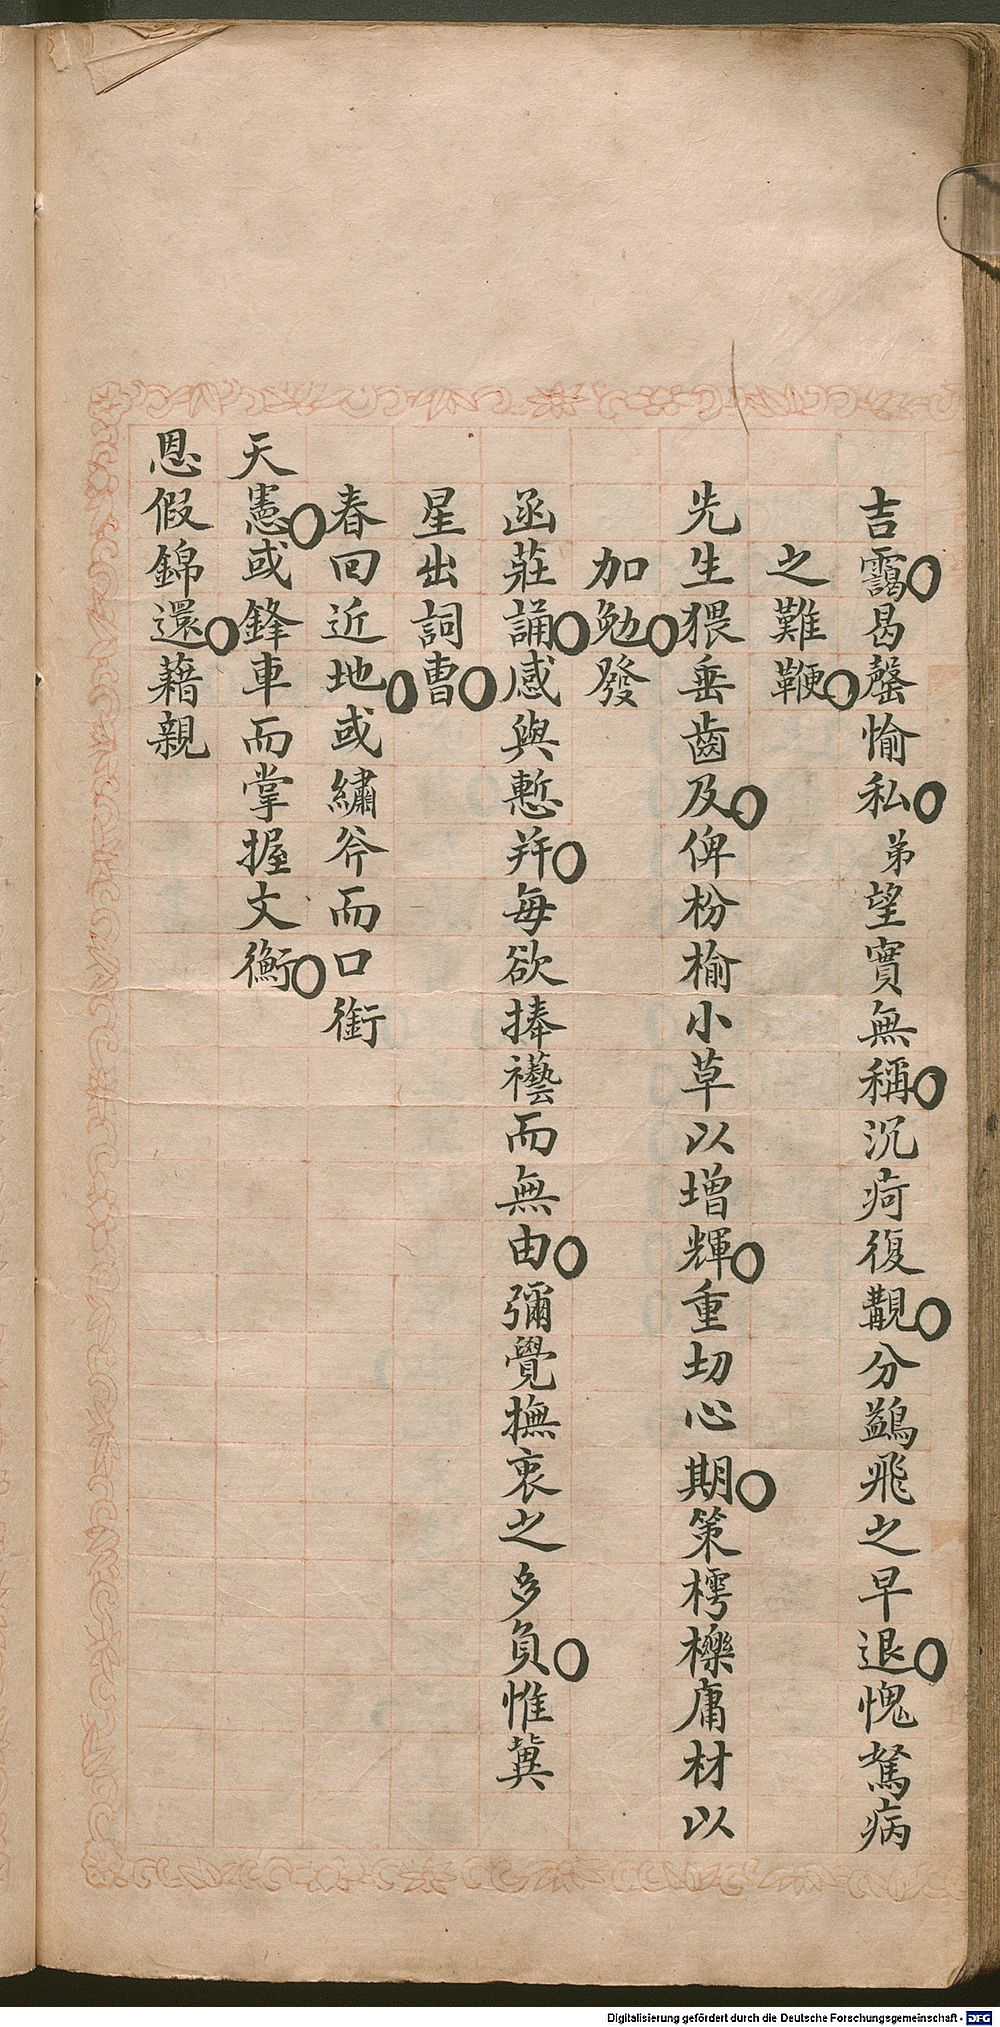 吉靄○曷罄愉私○弟望實無稱○沉疴復覯○分鷁飛之早退○愧駑病
之難鞭○
先生猥垂齒及○俾枌榆小草以增輝○重切心期○策樗櫟庸材以
加勉○發
函莊誦○感與慙并○每欲捧袂而無由○彌覺撫衷之多負○惟冀
星出詞曹○
春回近地○或繡斧而口銜
天憲○或鋒車而掌握文衡○
恩假錦還○藉親
Digitalisierung gefördert durch die Deutsche Forschungsgemeinschaft - DFG